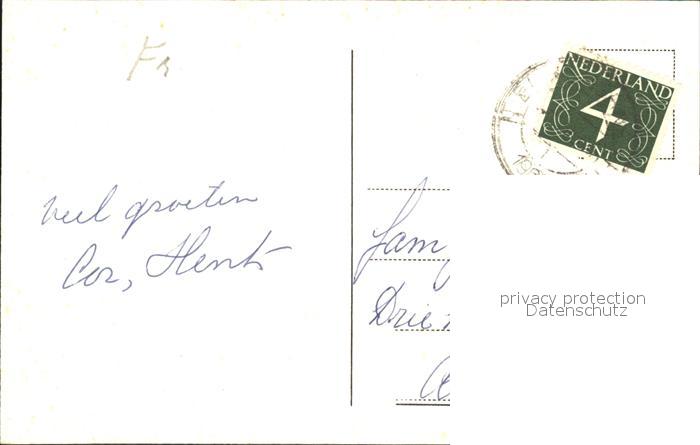 veel groeten
Cor, Henk
NEDERLAND
4
CENT
Fam
Drie
privacy protection
Datenschutz